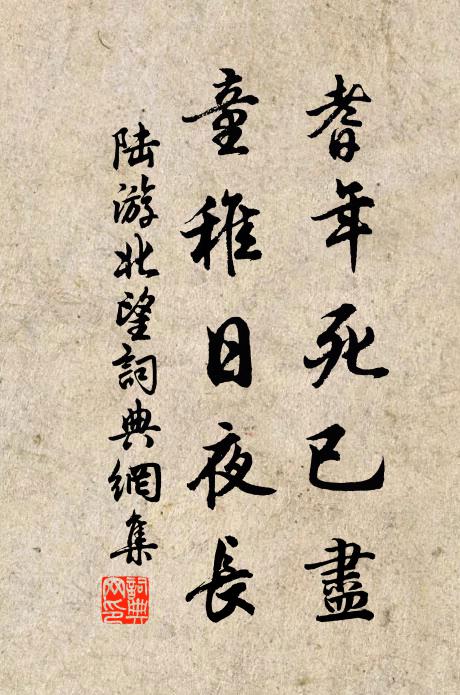 耆年死已盡
童稚日夜長
陸游北望詞典網集
詞典網印